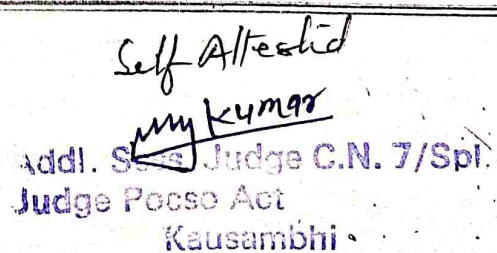 Self Attestid
Kumar
Addl. Sess. Judge C.N. 7/Spl.
Judge Pocso Act
Kausambhi